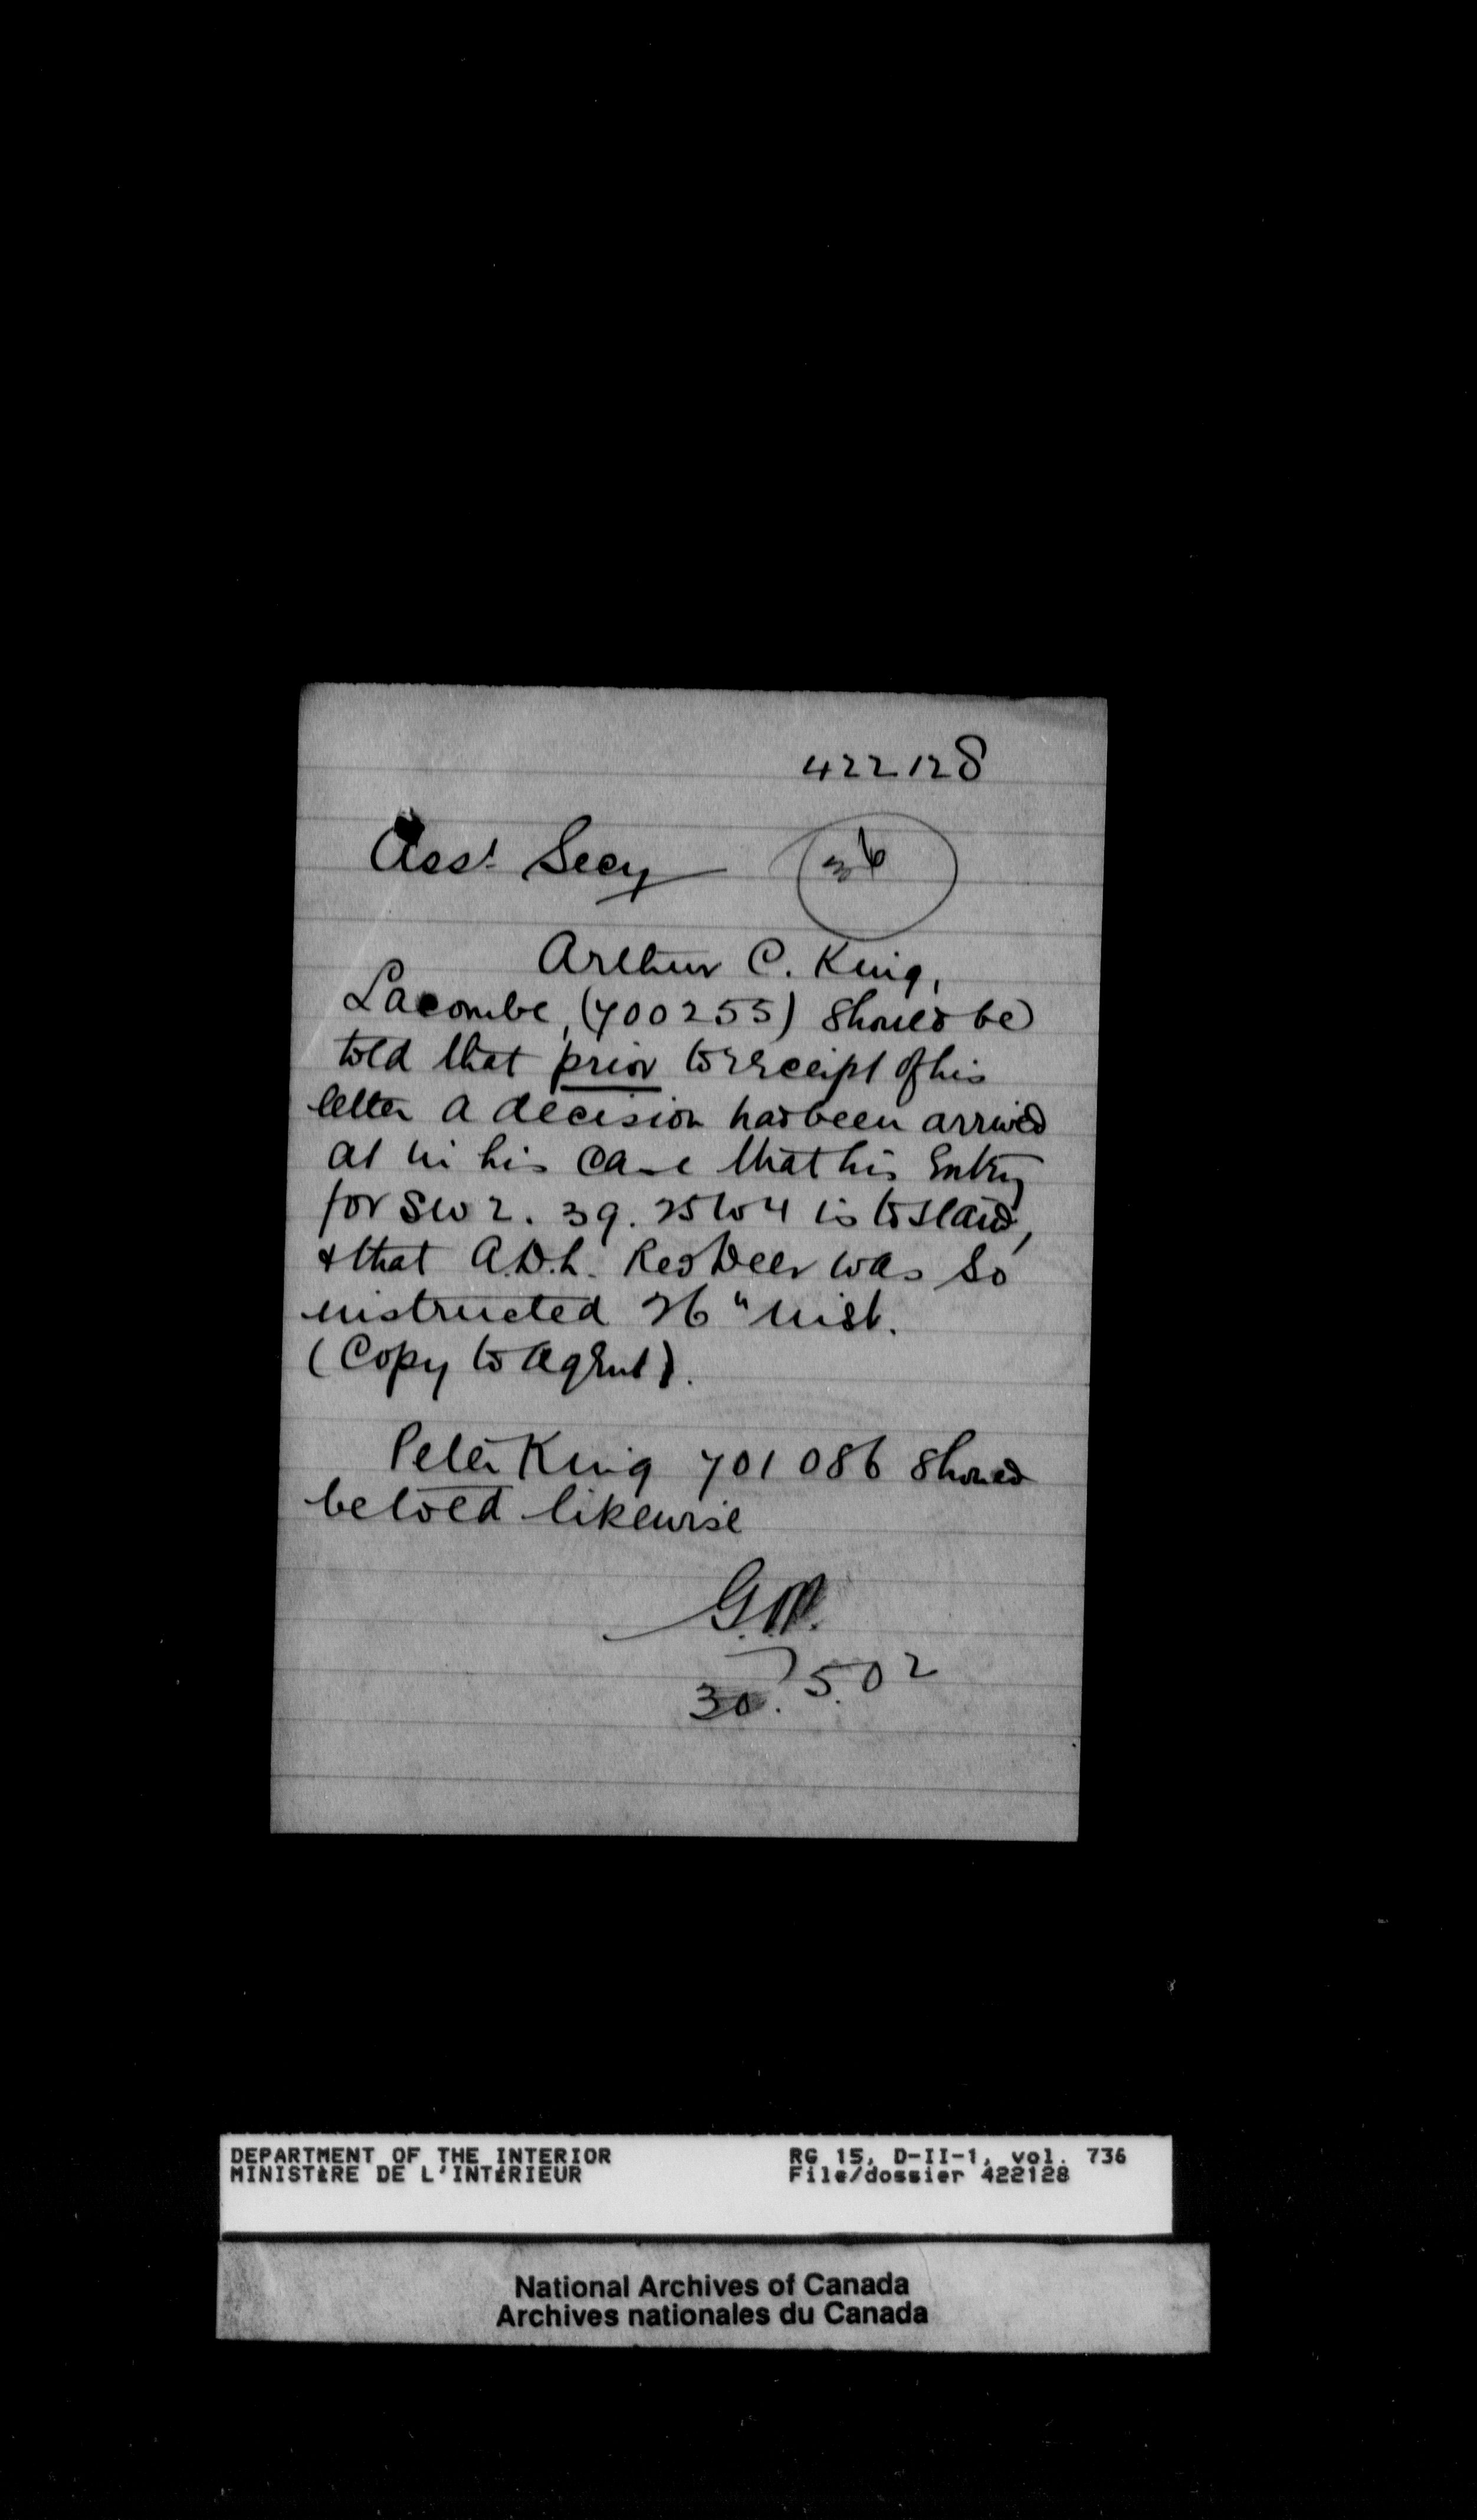 422128
Asst Secy
36
Arthur C. King,
Lacombe, (700255) should be
told that prior to receipt of his
letter a decision had been arrived
at in his case that his Entry
for SW 2. 39. 25 W 4 is to stand,
& that A.D.L. Red Deer was so
instructed 26" inst.
(Copy to Agent).
Peter King 701086 should
be told likewise
30.5.02
DEPARTMENT OF THE INTERIOR RG 15, D-II-1, vol. 736
MINISTÈRE DE L'INTÉRIEUR File/dossier 422128
National Archives of Canada
Archives nationales du Canada